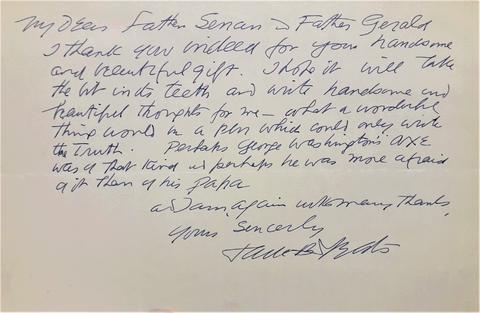 My Dear Father Senan & Father Gerald
I thank you indeed for your handsome
and beautiful gift. I hope it will take
the bit in its teeth and write handsome and
beautiful thoughts for me – what a wonderful
thing would be a pen which could only write
the Truth. Perhaps George Washington's axe
was of that kind or perhaps he was more afraid
of it than of his papa
and I am, again with many thanks,
Yours Sincerely
Jack B Yeats